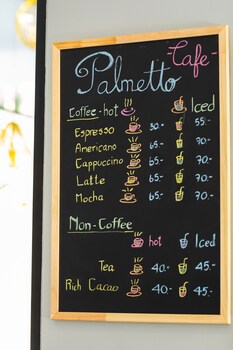 Palmetto Cafe-
Coffee-hot Iced
Espresso 30.- 55.-
Americano 65.- 70.-
Cappuccino 65.- 70.-
Latte 65.- 70.-
Mocha 65.- 70.-
Non-Coffee
hot Iced
Tea 40.- 45.-
Rich Cacao 40.- 45.-